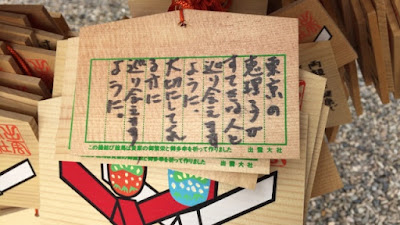 東京の
恵理子が
すてきな人と
巡り合えます
ように。
大切にしてくれ
る方に
巡り合えます
ように。
この縁結び絵馬は皆様の御繁栄と御多幸を祈って作りました
出雲大社
御繁栄と御多幸を祈って作りました
出雲大社